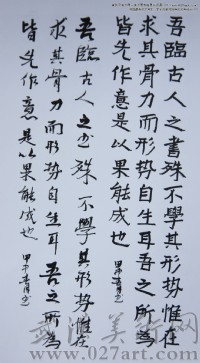 吾臨古人之書殊不學其形势惟在
求其骨力而形势自生耳吾之所為
皆先作意是以果能成也 甲申
吾臨古人之书殊不學其形势惟在
求其骨力而形势自生耳吾之所為
皆先作意是以果能成也 甲申
武汉美术网
www.027art.com